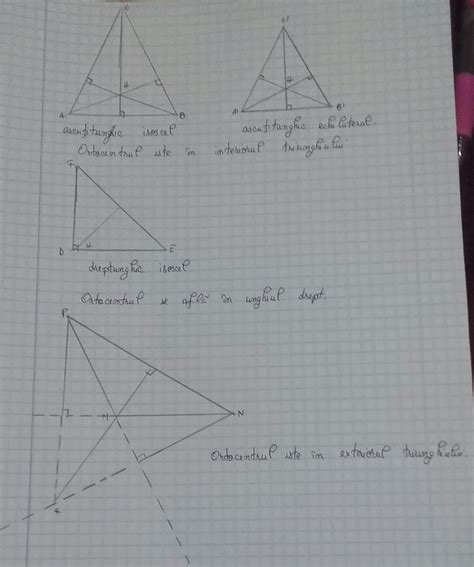 C C'
H H
A B A' B'
ascuțitunghic isoscel ascuțitunghic echilateral
Ortocentrul este în interiorul triunghiului.
F
D H E
dreptunghic isoscel
Ortocentrul se află în unghiul drept.
P
M N
Ortocentrul este în exteriorul triunghiului.
R